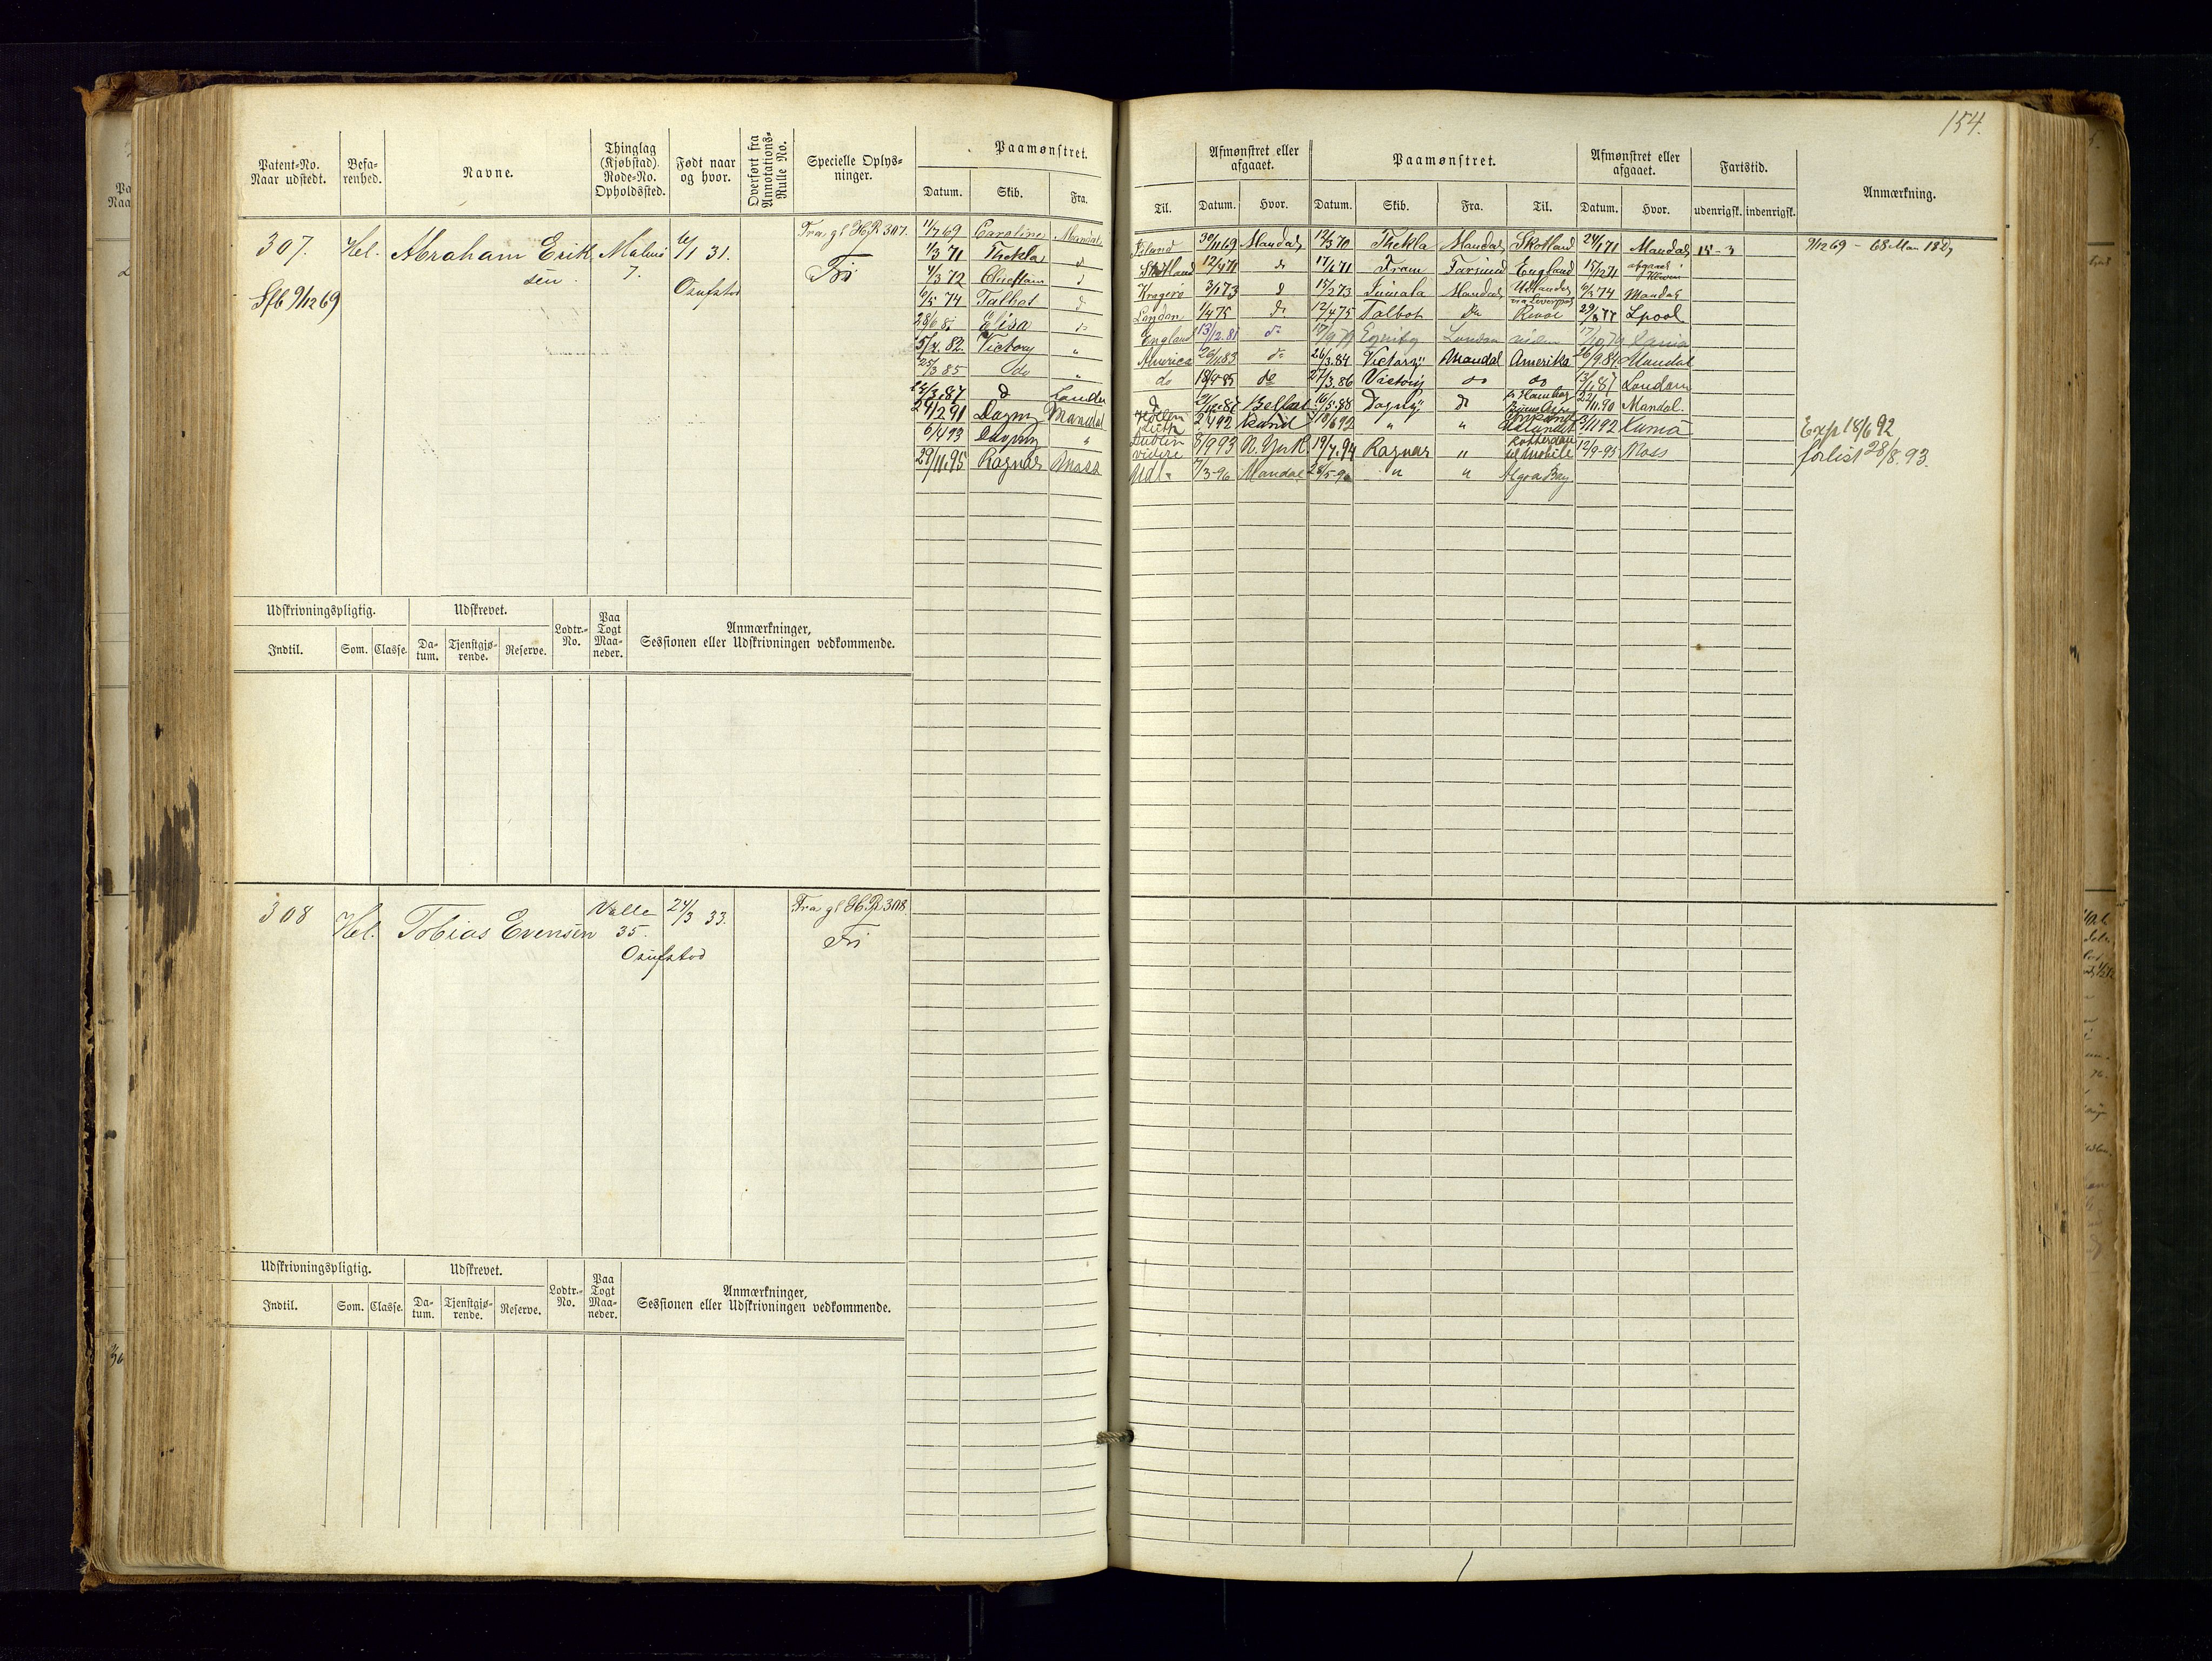 154.
Patent-No. Naar udstedt. Befa-renhed. Navne. Thinglag (Kjøbstad). Rode-No. Opholdssted. Født naar og hvor. Overført fra Annotations-Rulle No. Specielle Oplys-ninger. Paamønstret. Datum. Skib. Fra.
Til. Afmønstret eller afgaaet. Datum. Hvor. Paamønstret. Datum. Skib. Fra. Til. Afmønstret eller afgaaet. Datum. Hvor. Fartstid. udenrigsk. indenrigsk. Anmærkning.
307. Hel. Abraham Erik Malmö 31. Fra gl H.R. 307.
sen. 7. Fri
Sfb 9/12 69 Osufstod
1/7 69 Caroline Mandal Island 30/11 69 Mandal 12/3 70 Thekla Mandal Skotland 24/1 71 Mandal 15 - 3 9/12 69 - 68 Man 18 Dg
1/3 71 Thekla d Skotland 12/4 71 d 17/6 71 Fram Farsund England 15/12 71 afgaaet
4/3 72 Chieftain d Kragerø 3/1 73 d 15/2 73 Mandal 6/3 74 Mandal
6/5 74 Talbot d London 1/4 75 d 12/4 75 Talbot do via Liverpool 29/5 77 Lpool
28/6 8 Elisa do England 13/12.81 do London viden
15/4.82. Victory " America 26/11 83 do 26/3.84 Victory Mandal Amerika 26/9.84 Mandal
25/3 85 do " do 18/9 85 do 27/3.86 Victory do do 13/1.87 London
24/3.87 d London d Belfast 16/5.88 Dagny do 22/11.90 Mandal.
24/2 91 Dagny Mandal Leith 2/4 92 18/6 92 " " 3/11 92 Exp 18/6 92
6/4 93 Dagny " Dublin 8/9 93 N. York 19/7.94 Ragnar " Rotterdam 12/9-95 Moss forlist 28/8.93.
29/11.95 Ragnar Moss Udl. 7/3-96 Mandal 28/5-96 " " Algoa Bay
Udskrivningspligtig. Udskrevet. Lodtr.-No. Paa Togt Maa-neder. Anmærkninger, Sessionen eller Udskrivningen vedkommende.
Indtil. Som. Classe. Da-tum. Tjenstgjø-rende. Reserve.
308 Hel. Tobias Evensen Valle 24/3 33. Fra gl H.R. 308.
35. Fri
Osufstod
Udskrivningspligtig. Udskrevet. Lodtr.-No. Paa Togt Maa-neder. Anmærkninger, Sessionen eller Udskrivningen vedkommende.
Indtil. Som. Classe. Da-tum. Tjenstgjø-rende. Reserve.